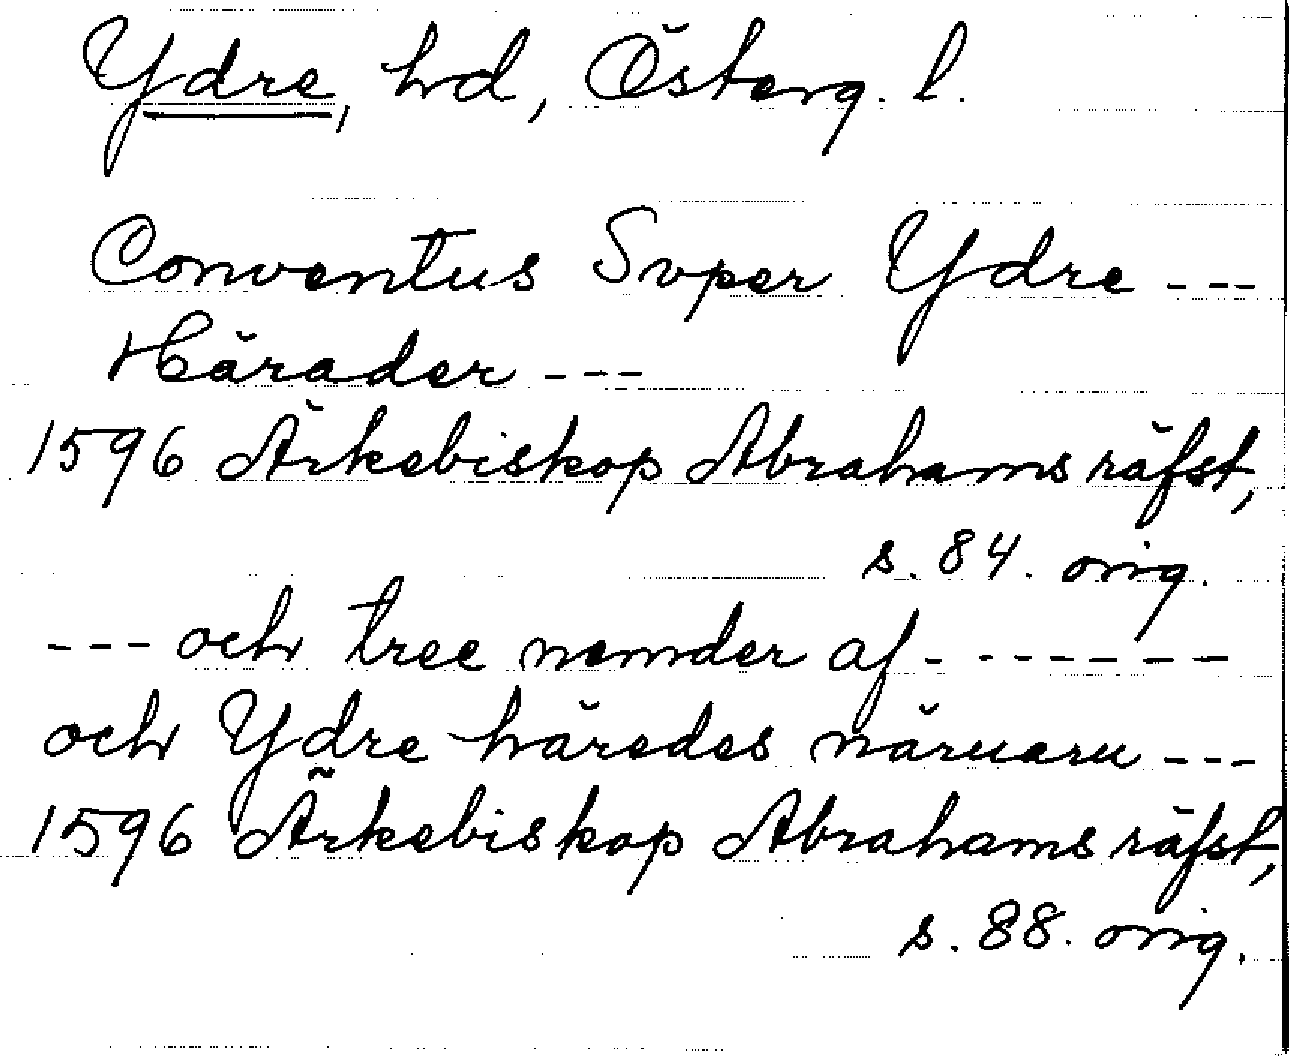 Ydre, hd, Österg. l.
Conventus Svper Ydre ---
Härader ---
1596 Ärkebiskop Abrahams räfst,
s. 84. orig.
--- och tree nemder af - ------
och Ydre häredes näruaru ---
1596 Ärkebiskop Abrahams räfst,
s. 88. orig.